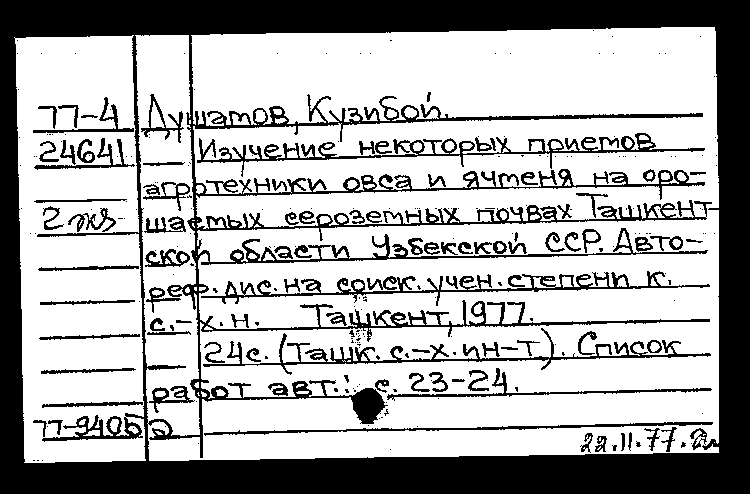 77-4 Душамов, Кузибой.
24641 Изучение некоторых приемов
агротехники овса и ячменя на оро-
2 экз шаемых сероземных почвах Ташкент-
ской области Узбекской ССР. Авто-
реф. дис. на соиск. учен. степени к.
с.-х.н. Ташкент, 1977.
24с. (Ташк. с.-х. ин-т). Список
работ авт.: с. 23-24.
77-9405
22.11.77.